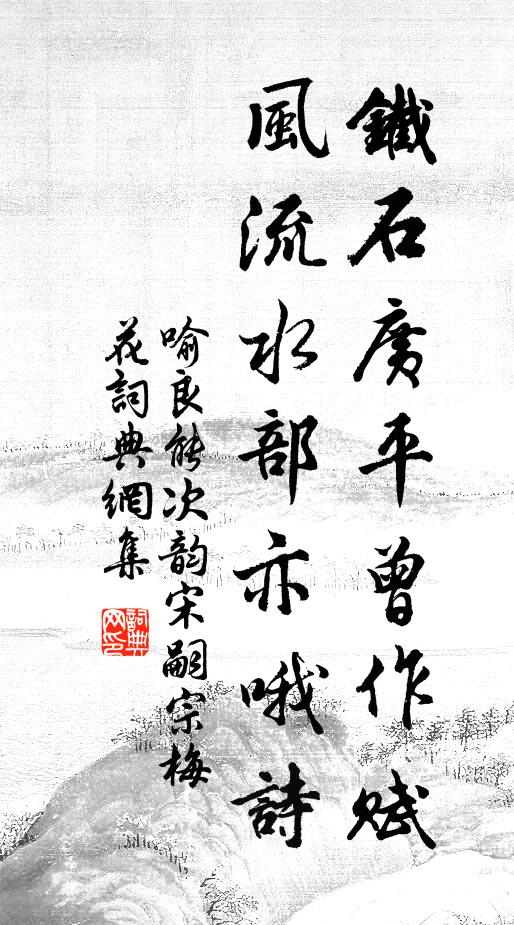 鐵石廣平曾作賦
風流水部亦哦詩
喻良能次韵宋嗣宗梅
花詞典網集
詞典
网印